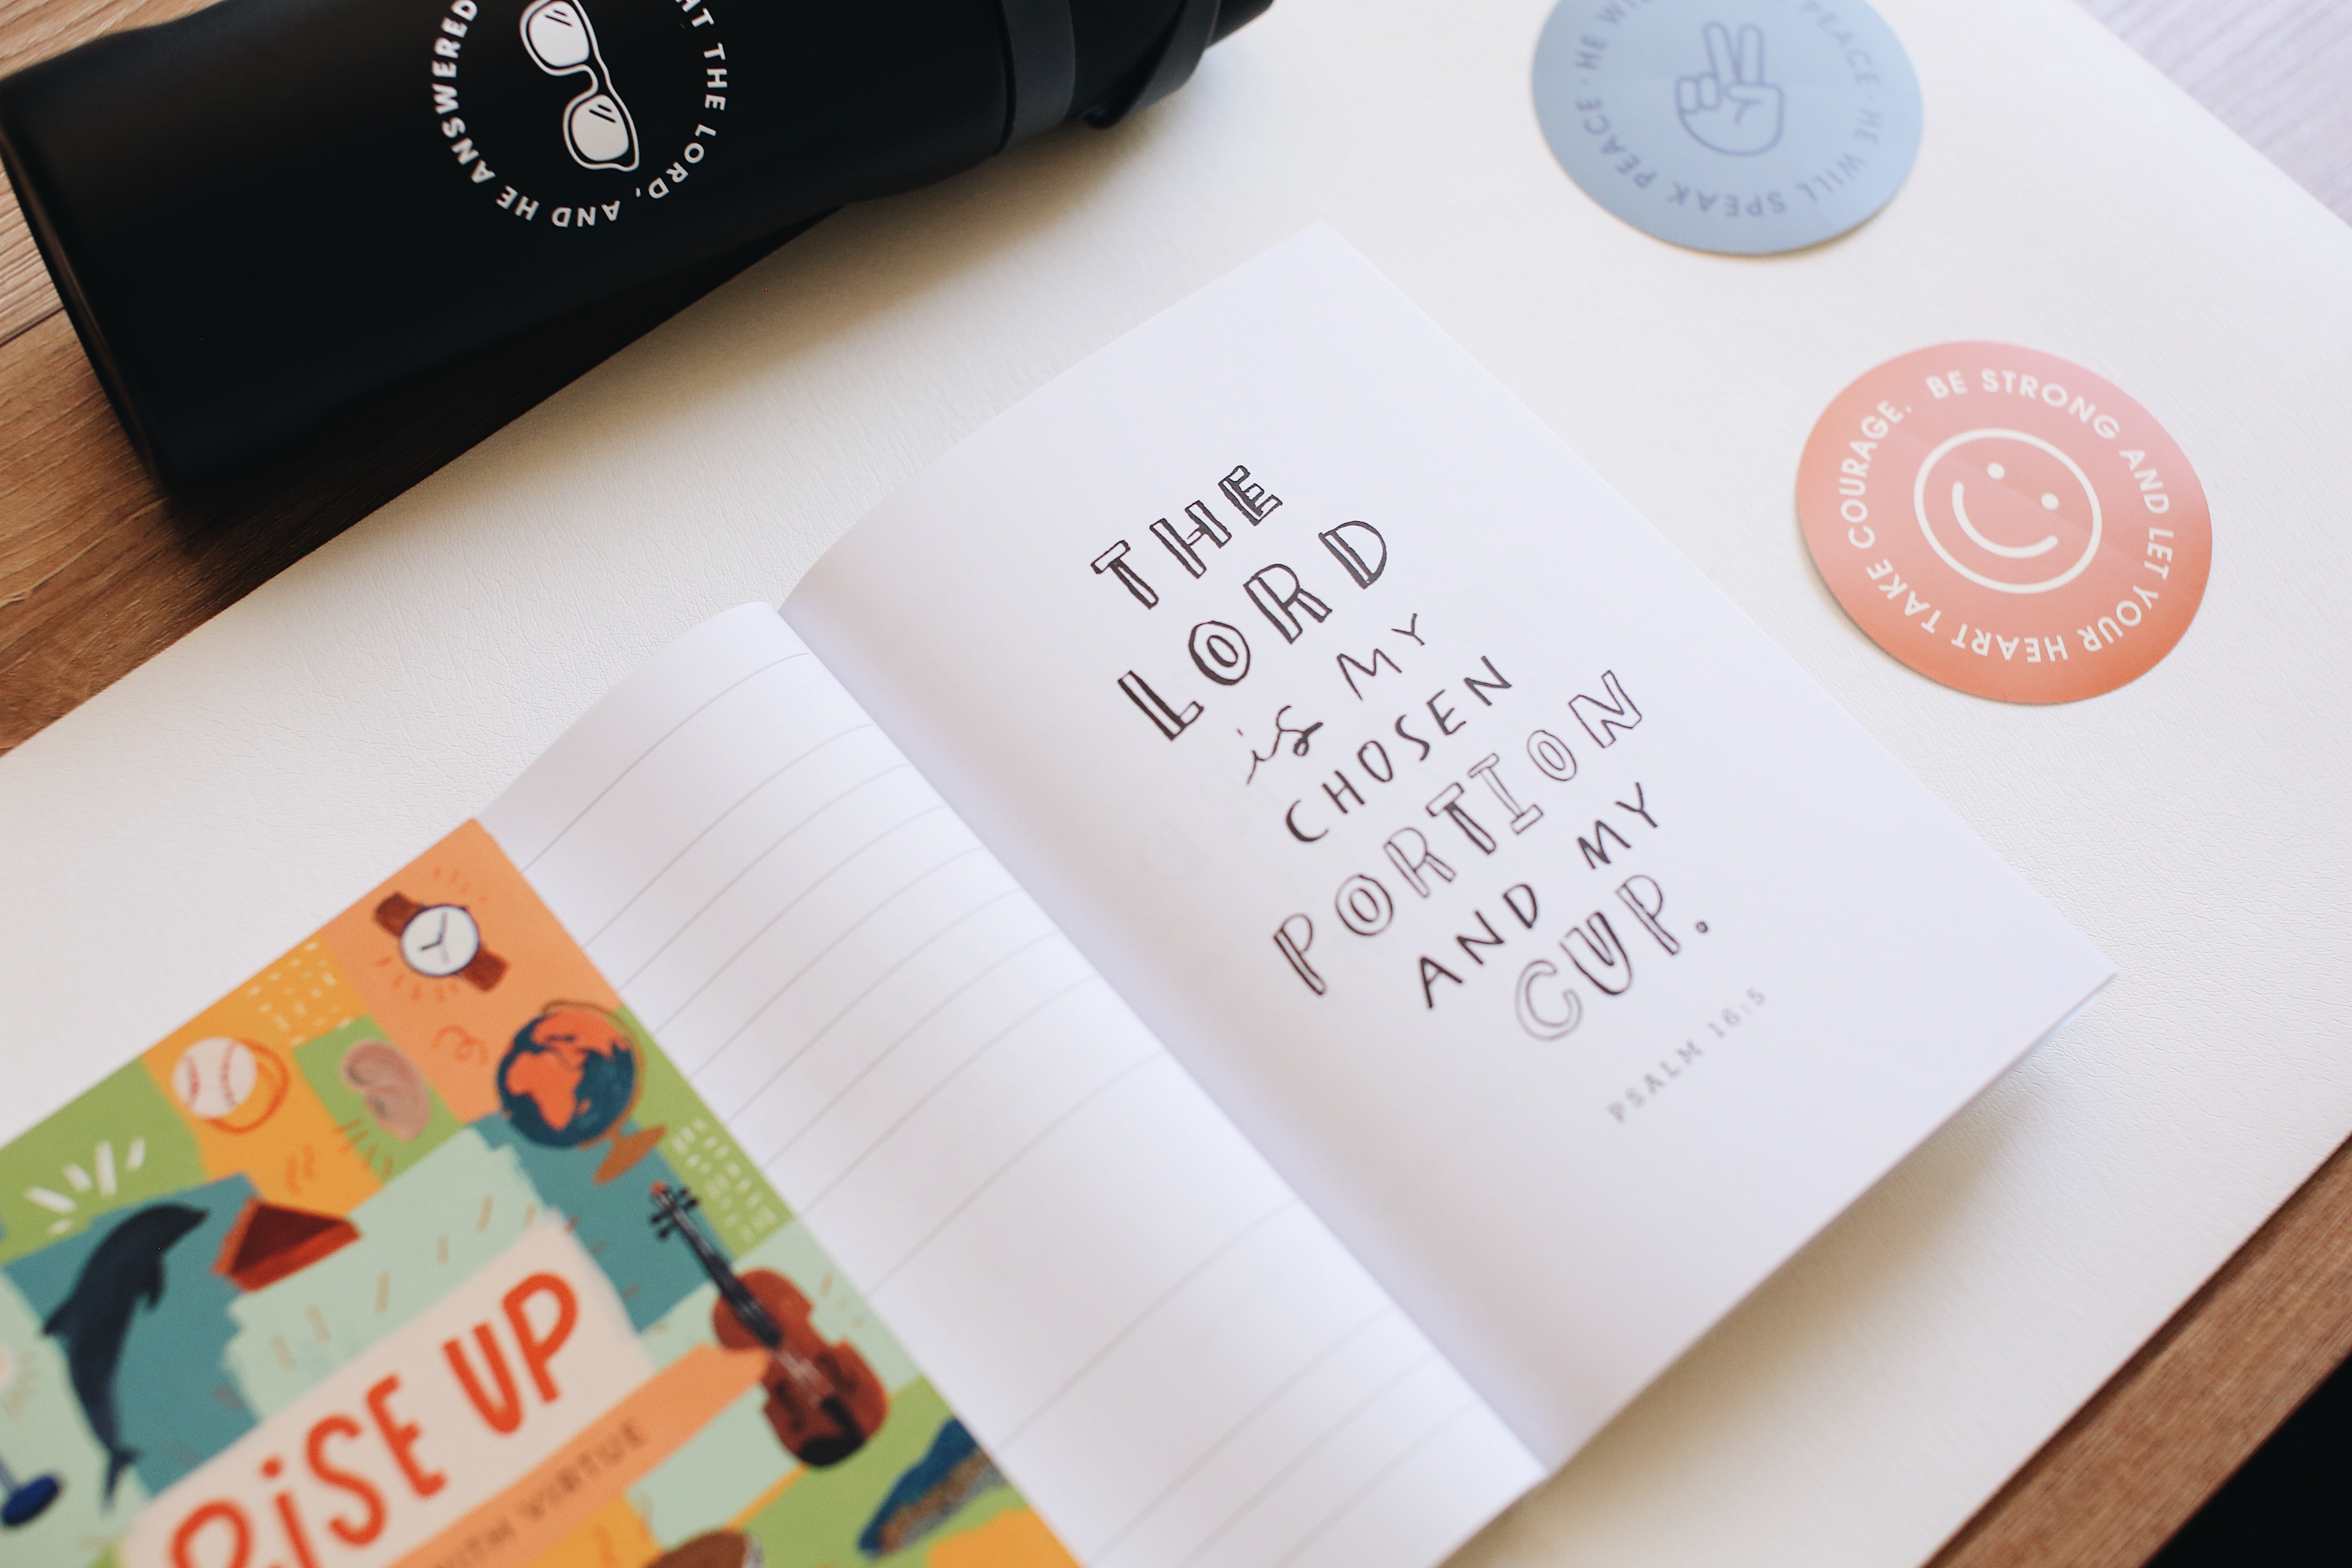 AT THE LORD, AND HE ANSWERED
PEACE · HE WILL SPEAK PEACE · HE
BE STRONG AND LET YOUR HEART TAKE COURAGE.
THE
LORD
is MY
CHOSEN
PORTION
AND MY
CUP.
PSALM 16:5
RiSE UP
WITH VIRTUE